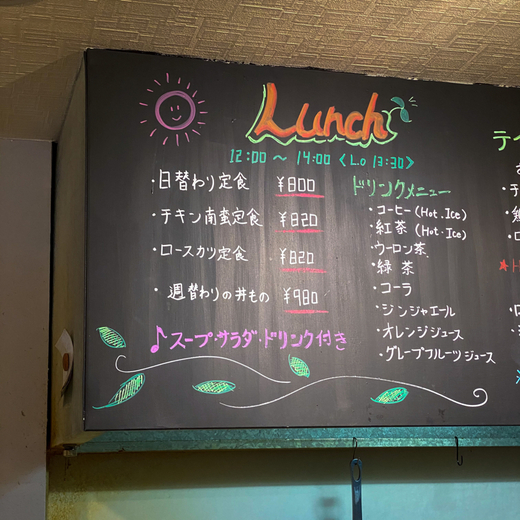 Lunch
12:00 〜 14:00 <L.o 13:30>
・日替わり定食 ¥800
・チキン南蛮定食 ¥820
・ロースカツ定食 ¥820
・週替わりの丼もの ¥980
♪スープ・サラダ・ドリンク付き
ドリンクメニュー
・コーヒー (Hot・Ice)
・紅茶 (Hot・Ice)
・ウーロン茶
・緑茶
・コーラ
・ジンジャエール
・オレンジジュース
・グレープフルーツジュース
テイ